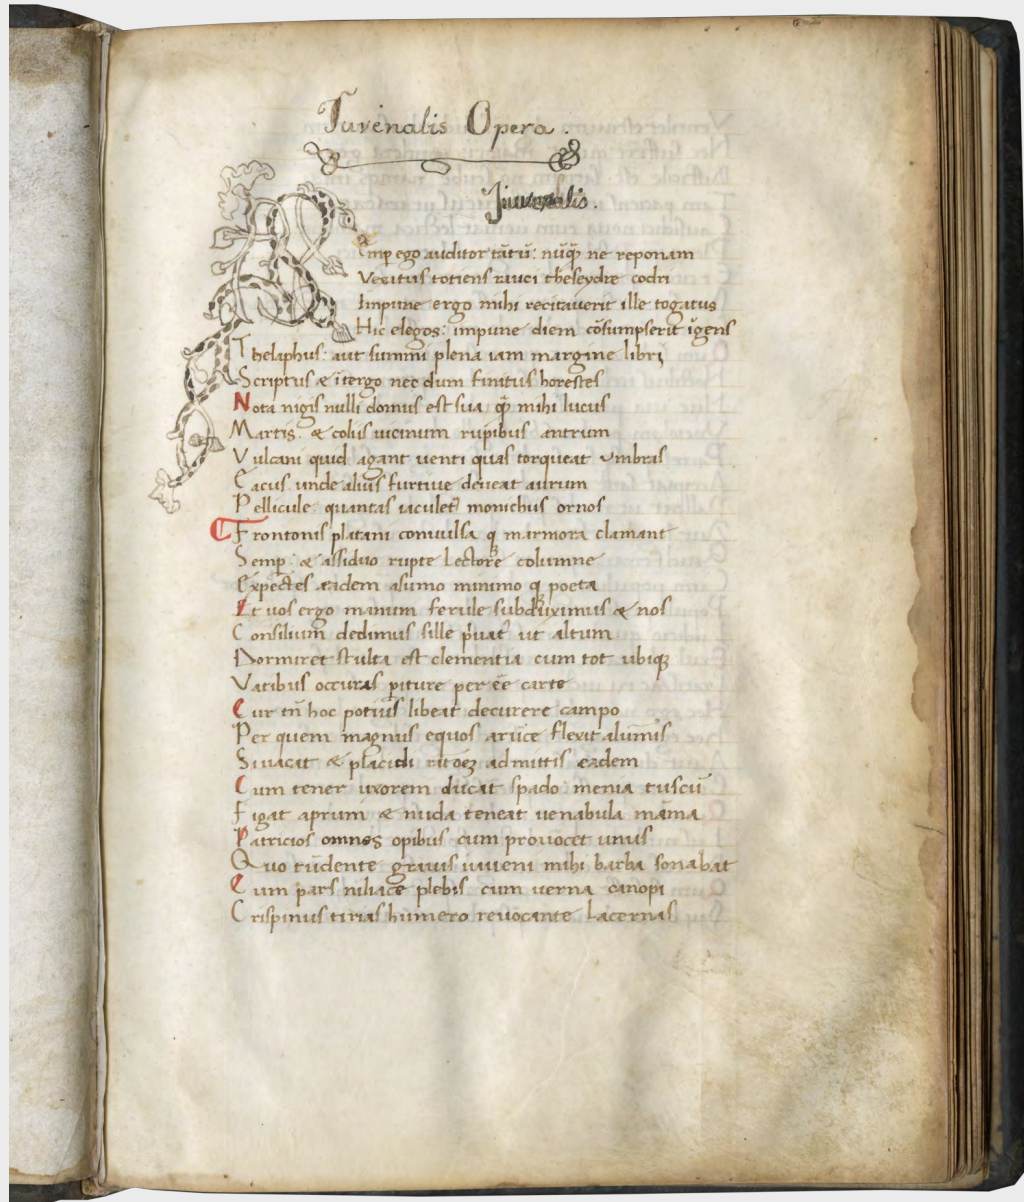 Iuvenalis Opera.
Iuuenalis.
Semp ego auditor tātū: nūq̄ ne reponam
Vexatus totiens rauci theseydre codri
Impune ergo mihi recitauerit ille togatus
Hic elegos: impune diem cōsumpserit īgens
Thelaphus: aut summi plena iam margine libri
Scriptus & ītergo nec dum finitus horestes
Nota nigis nulli domus est sua q̄ mihi lucus
Martis. & colis uicinum rupibus antrum
Vulcani quid agant uenti quas torqueat umbras
Cacus unde alius furtiue deueat aurum
Pellicule. quantas iaculet᷑ monichus ornos
Frontonis platani conuulsa q; marmora clamant
Semp̱. & assiduo rupte Lectore columne
Expectes eadem asumo minimo q; poeta
Et uos ergo manum ferule subduximus & nos
Consilium dedimus sille p̱uat᷑ ut altum
Dormiret stulta est clementia cum tot ubiq;
Vatibus occuras p̱iture per ēē carte
Cur tn̄ hoc potius libeat decurere campo
Per quem magnus equos aruīce flexit alumnis
Si uacat & placidi ratōēz admittis eadem
Cum tener uxorem ducat spado. menia tuscū
Figat aprum & nuda teneat uenabula māma
Patricios omnes opibus cum prouocet unus
Quo tūdente grauis iuueni mihi barba sonabat
Cum pars niliace plebis cum uerna canopi
Crispinus tirias humero reuocante Lacernas